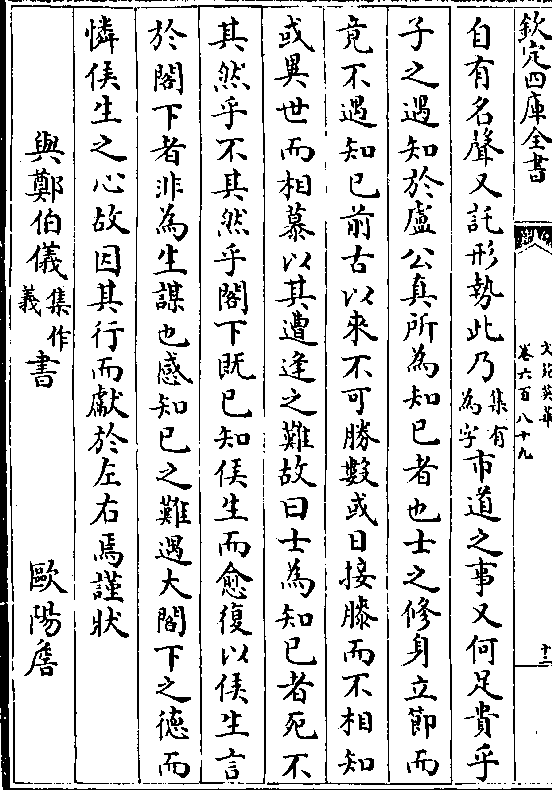 欽定四庫全書
文苑英華
卷六百八十九
十三
自有名聲又託形勢此乃集有為字市道之事又何足貴乎
子之遇知於盧公真所為知已者也士之修身立節而
竟不遇知已前古以來不可勝數或日接膝而不相知
或異世而相慕以其遭逢之難故曰士為知已者死不
其然乎不其然乎閣下既已知侯生而愈復以侯生言
於閣下者非為生謀也感知已之難遇大閣下之徳而
憐侯生之心故因其行而獻於左右焉謹狀
與鄭伯儀集作義書 歐陽詹